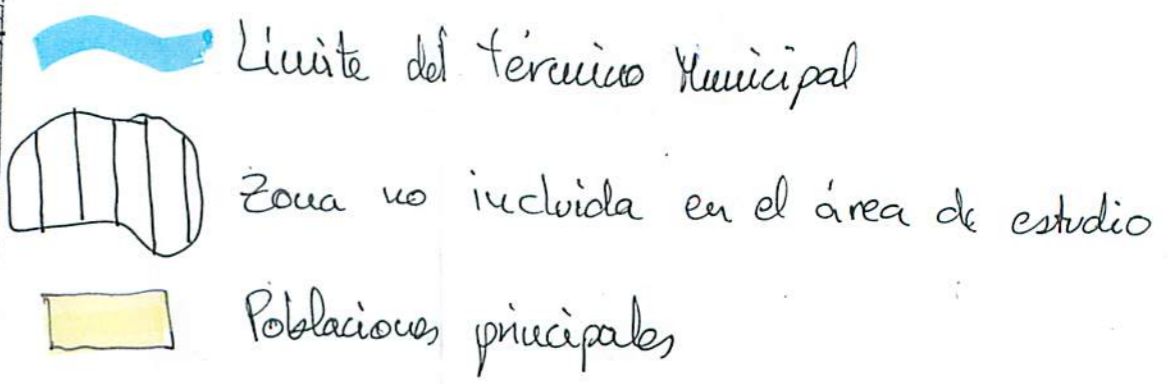 Límite del término Municipal
Zona no incluida en el área de estudio
Poblaciones principales